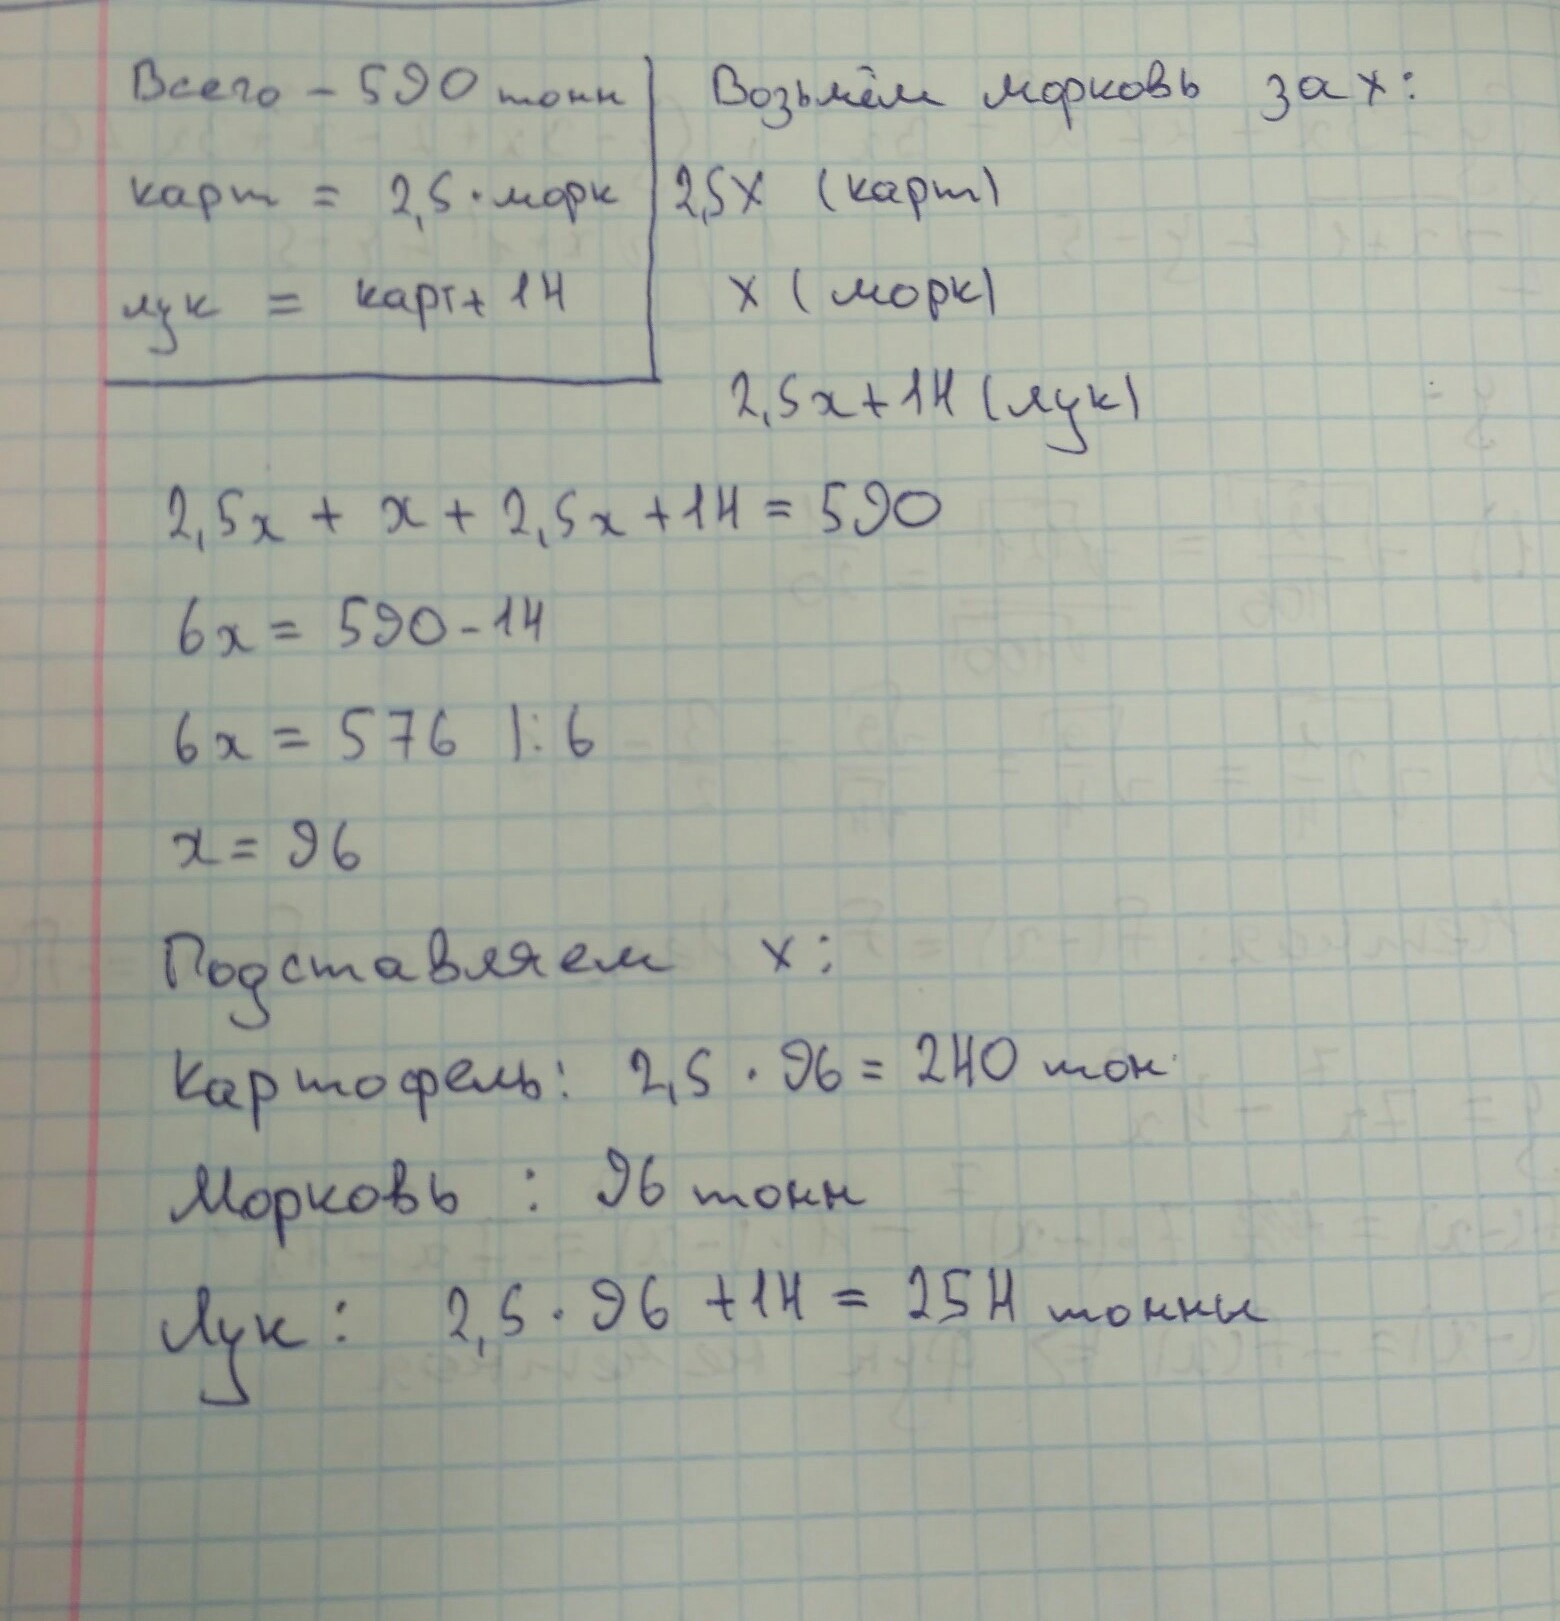 Всего - 590 тонн
карт = 2,5 · морк
лук = карт + 14
Возьмём морковь за x:
2,5x (карт)
x (морк)
2,5x + 14 (лук)
2,5x + x + 2,5x + 14 = 590
6x = 590 - 14
6x = 576 |: 6
x = 96
Подставляем x:
Картофель: 2,5 · 96 = 240 тон
Морковь : 96 тонн
Лук : 2,5 · 96 + 14 = 254 тонны